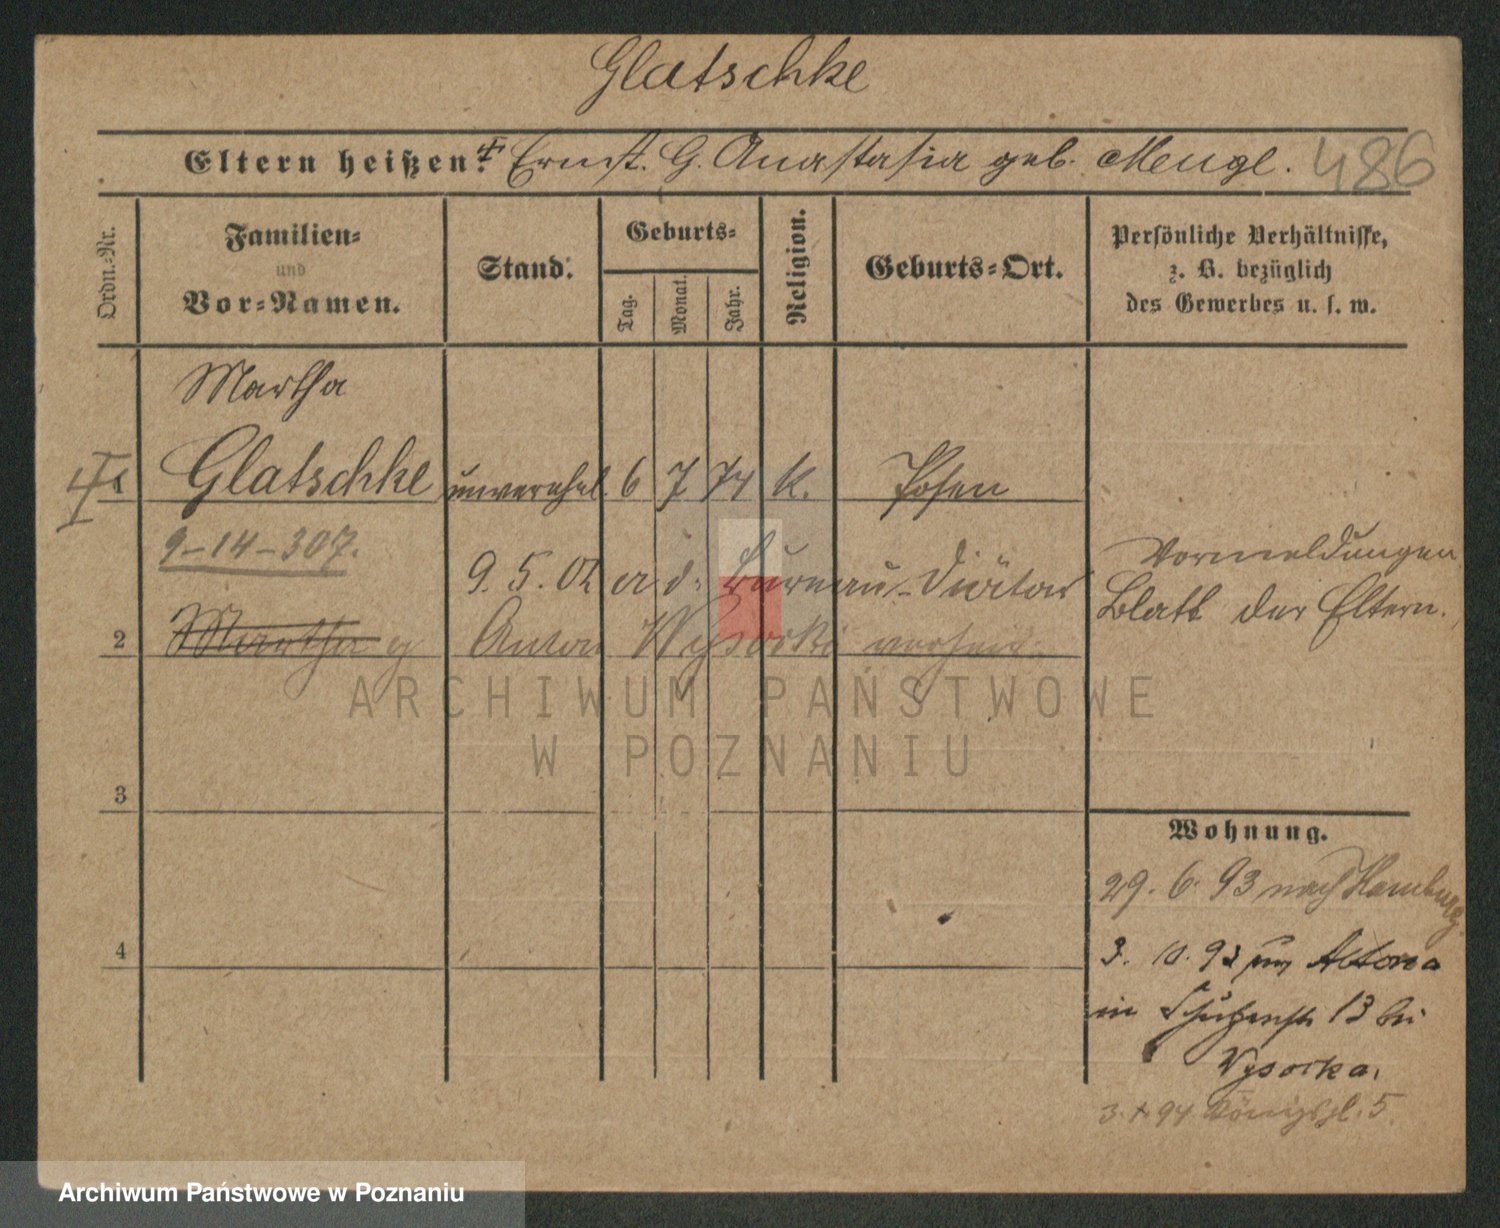 Glatschke
Eltern heißen: Ernst. G. Anastasia geb. Mengl. 486
Ordn.-Nr.
Familien-
und
Vor-Namen.
Stand.
Geburts-
Tag.
Monat.
Jahr.
Religion.
Geburts-Ort.
Persönliche Verhältnisse,
z. B. bezüglich
des Gewerbes u. s. w.
Martha
1 Glatschke unverehel. 6 7 74 K. Posen
9-14-307.
9. 5. 02 a d. Bureau-Diätar
2 Martha Anton Wysocki
Vormeldungen
Blatt der Eltern.
ARCHIWUM PAŃSTWOWE
W POZNANIU
3
4
Wohnung.
29. 6. 93 nach Hamburg
3. 10. 93 Altona
in Schützenstr 13 bei
Wysocka.
3. 94 Königspl. 5
Archiwum Państwowe w Poznaniu